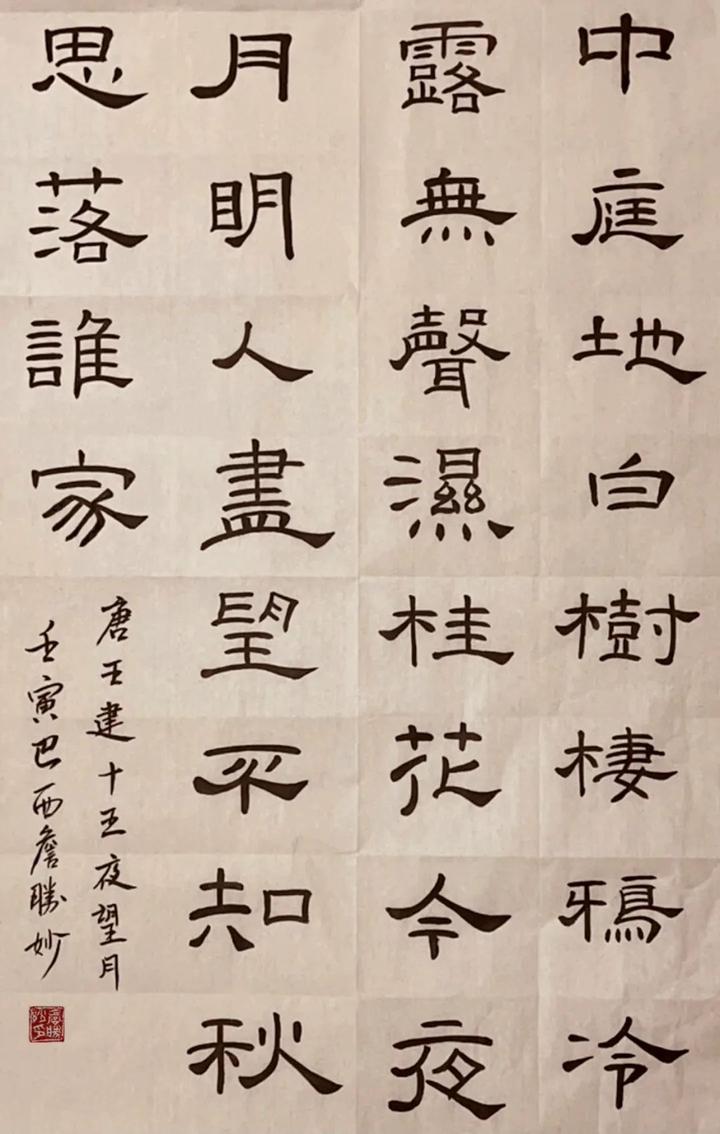 中庭地白樹棲鴉冷
露無聲濕桂花今夜
月明人盡望不知秋
思落誰家
唐王建十五夜望月
壬寅巴西詹勝妙